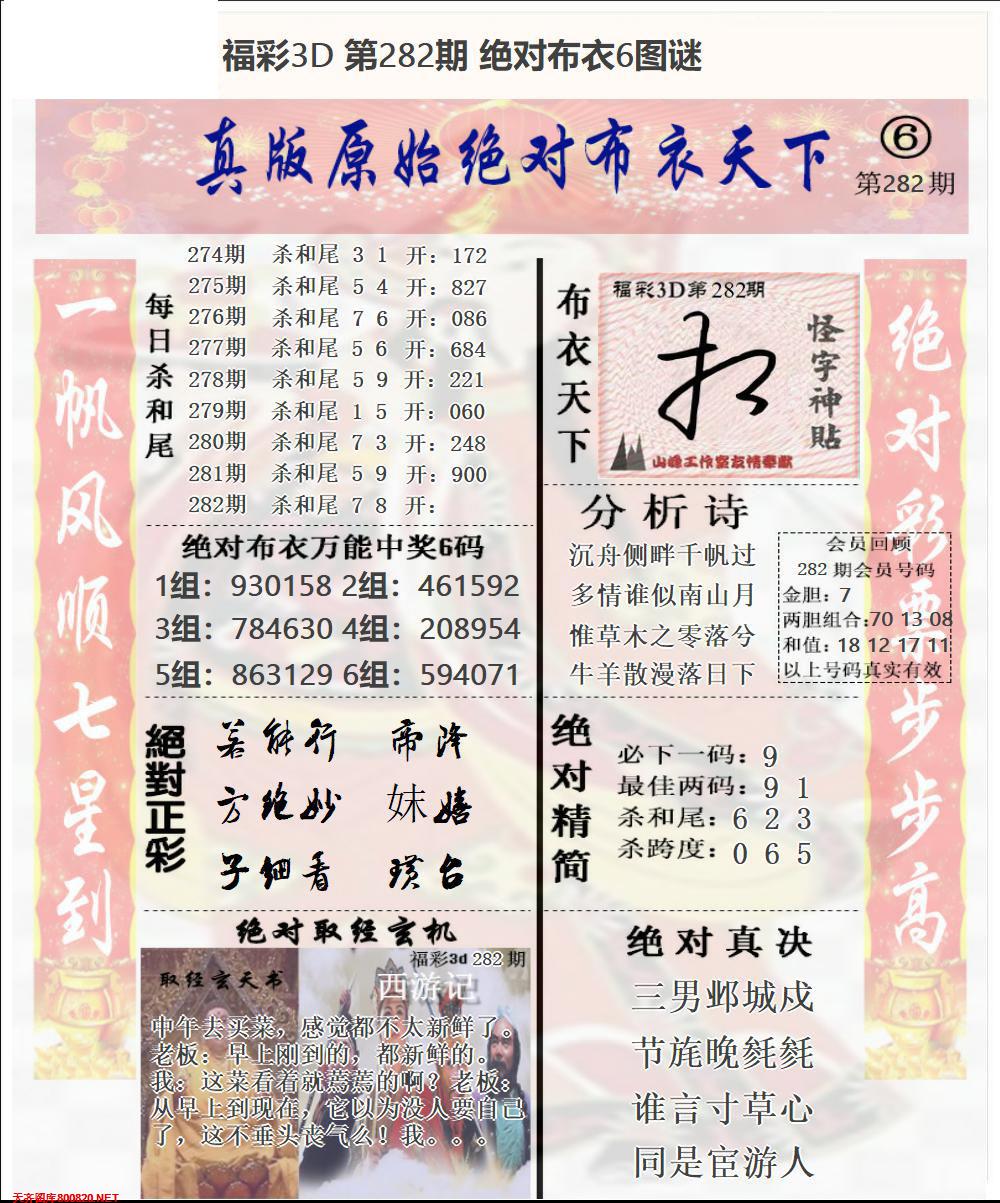 福彩3D 第282期 绝对布衣6图谜
真版原始绝对布衣天下
⑥
第282期
一帆风顺七星到
绝对彩票步步高
每日杀和尾
274期 杀和尾 3 1 开：172
275期 杀和尾 5 4 开：827
276期 杀和尾 7 6 开：086
277期 杀和尾 5 6 开：684
278期 杀和尾 5 9 开：221
279期 杀和尾 1 5 开：060
280期 杀和尾 7 3 开：248
281期 杀和尾 5 9 开：900
282期 杀和尾 7 8 开：
绝对布衣万能中奖6码
1组：930158 2组：461592
3组：784630 4组：208954
5组：863129 6组：594071
絕對正彩
若能行 帝降
方绝妙 妹嬉
子细看 璜台
绝对取经玄机
福彩3d 282期
取经玄天书
西游记
中午去买菜，感觉都不太新鲜了。
老板：早上刚到的，都新鲜的。
我：这菜看着就蔫蔫的啊？老板：
从早上到现在，它以为没人要自己
了，这不垂头丧气么！我。。。
布衣天下
福彩3D第282期
怪字神貼
山峰工作室友情奉献
分析诗
沉舟侧畔千帆过
多情谁似南山月
惟草木之零落兮
牛羊散漫落日下
会员回顾
282期会员号码
金胆：7
两胆组合:70 13 08
和值：18 12 17 11
以上号码真实有效
绝对精简
必下一码：9
最佳两码：9 1
杀和尾：6 2 3
杀跨度：0 6 5
绝对真决
三男邺城戍
节旄晚毵毵
谁言寸草心
同是宦游人
天齐图库800820.NET